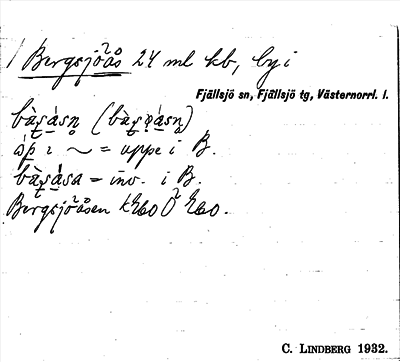 Bergsjöås 24 ml kb, by i
Fjällsjö sn, Fjällsjö tg, Västernorrl. l.
bàṣásn̥ (bàṣąásn̥)
áp̣ ɩ ~ = uppe i B.
bàṣása = inv. i B.
Bergsjöåsen Ö
C. LINDBERG 1932.